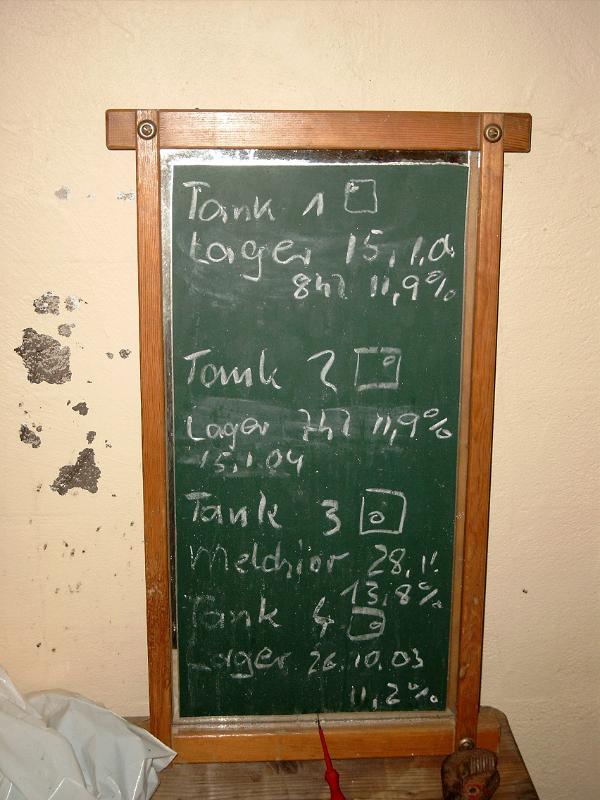 Tank 1
Lager 15.1.0
8hl 11,9%
Tank 2
Lager 7hl 11,9%
15.1.04
Tank 3
Melchior 28.11.
13,8%
Tank 4
Lager 26.10.03
11,2%